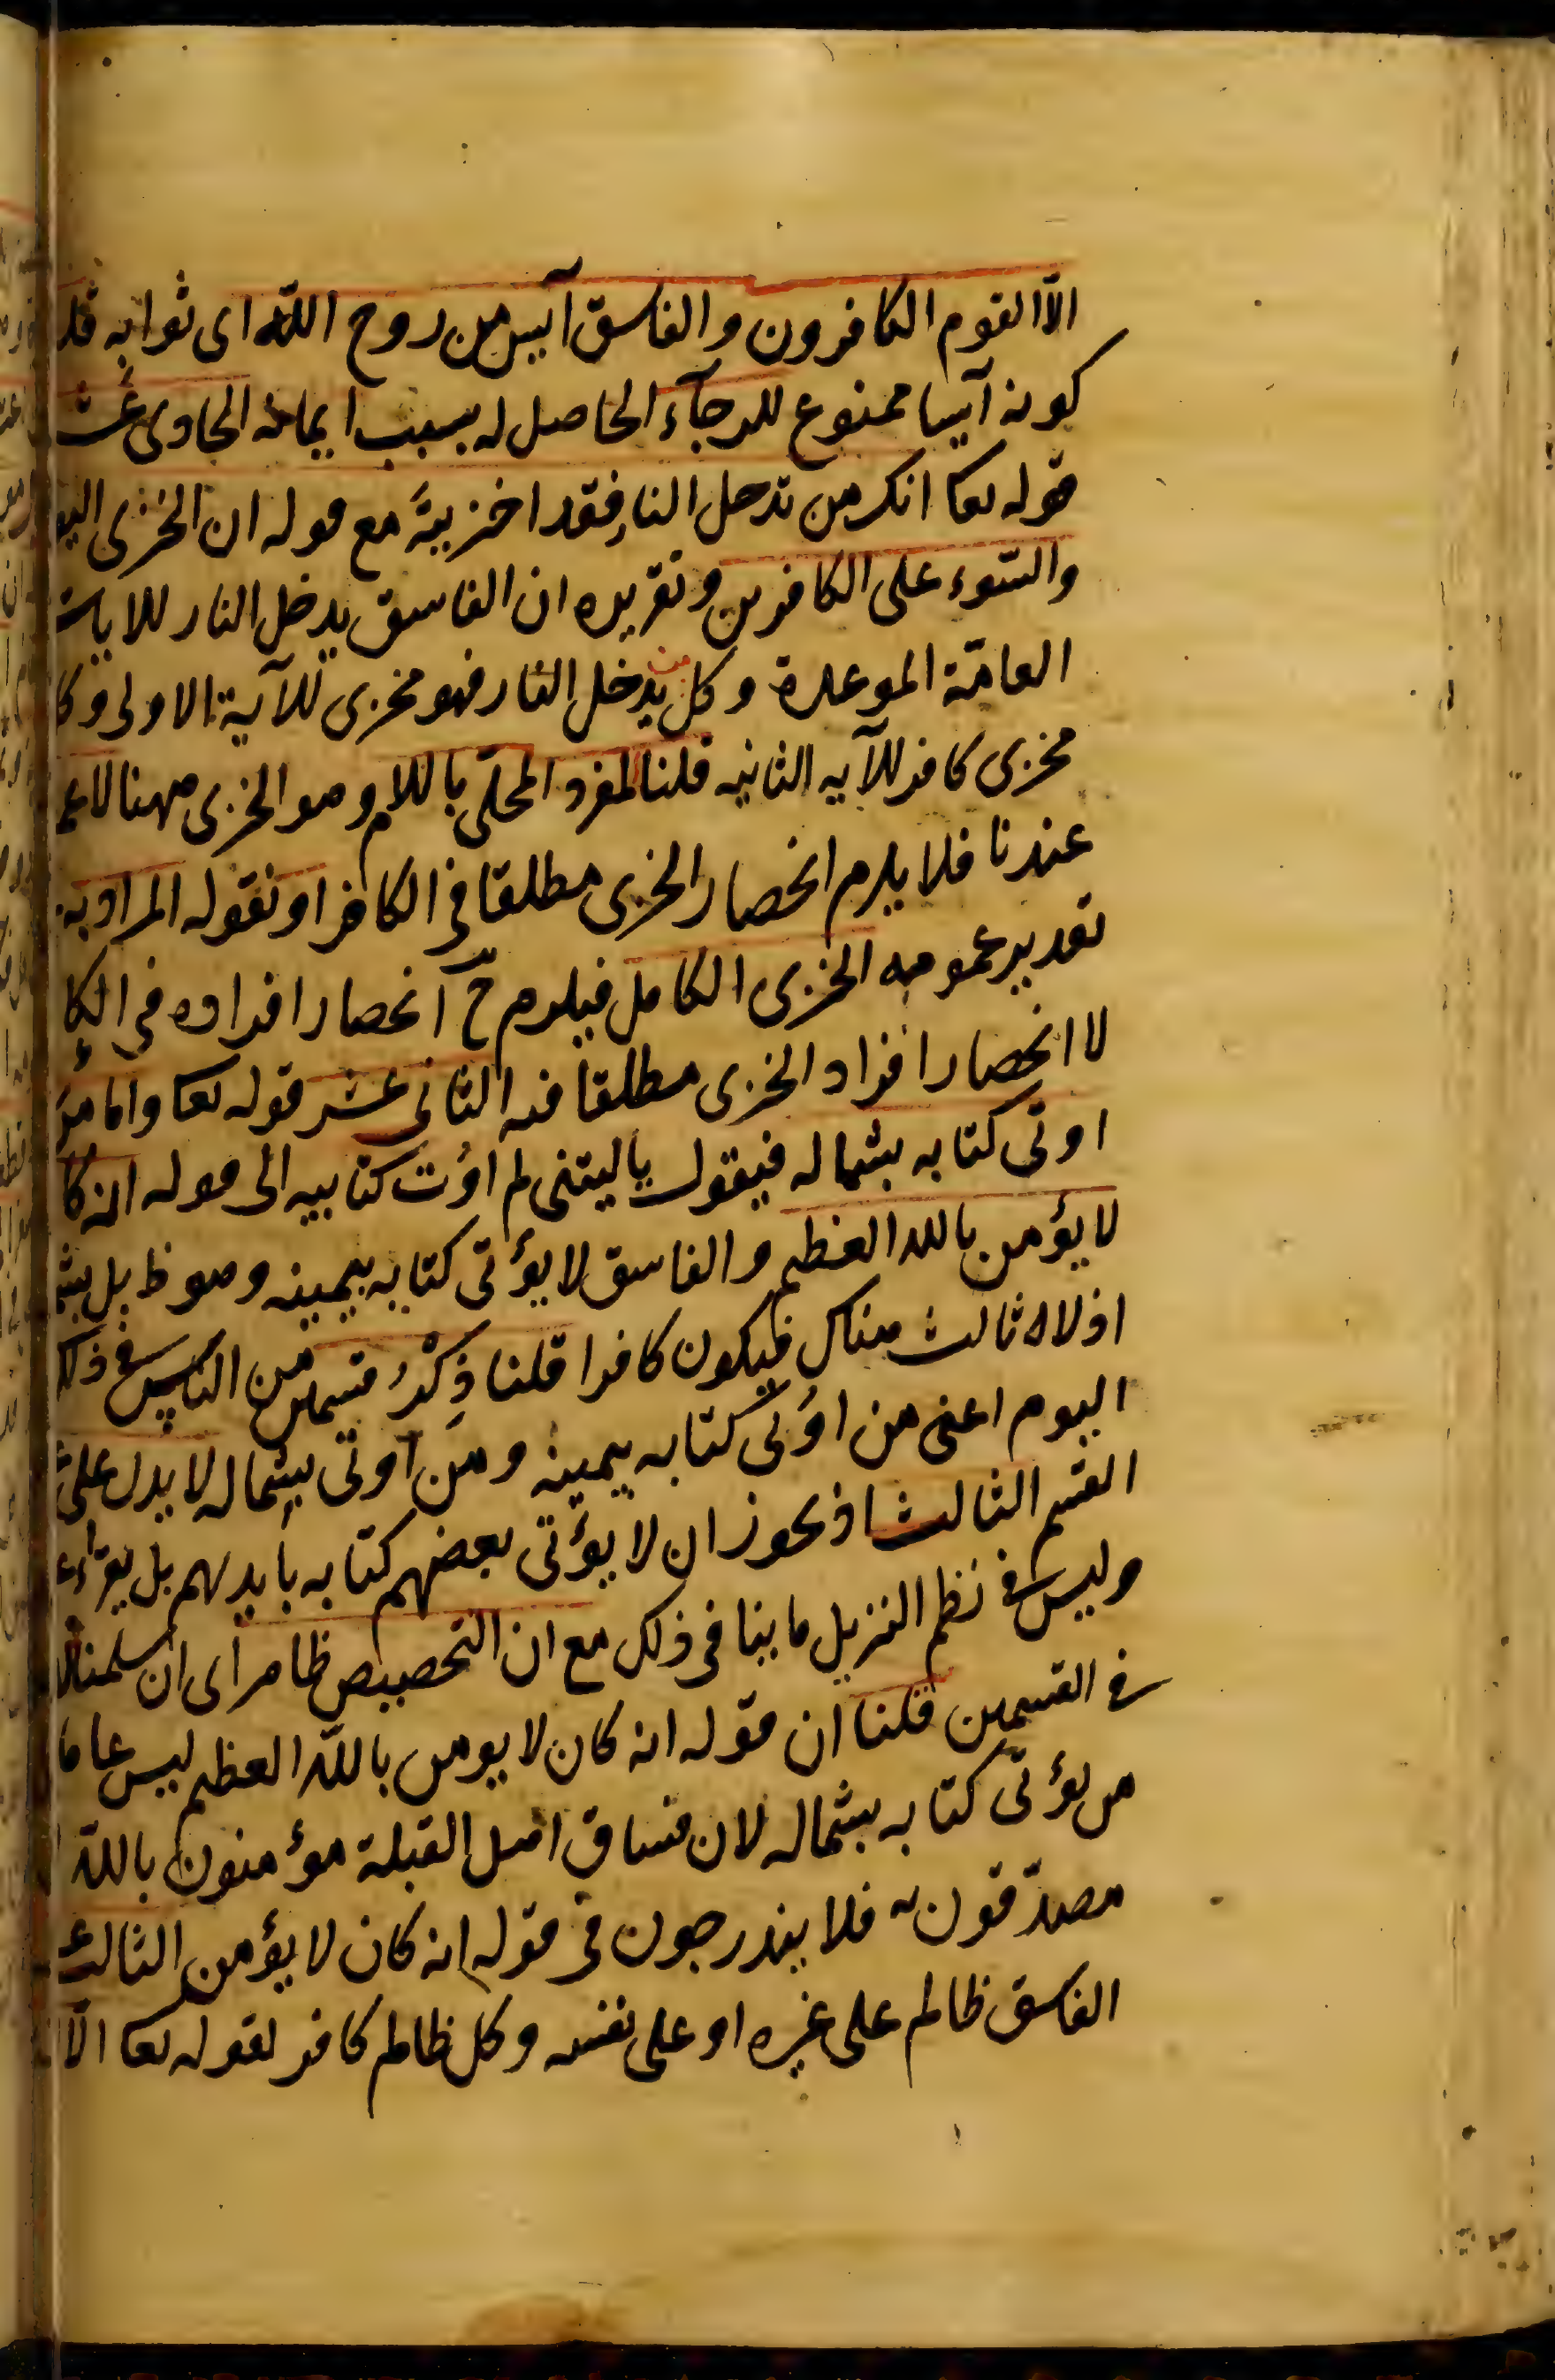 الّا القوم الكافرون والفاسق آيس من روح اللّه اى ثوابه قلنا
كونه آيسا ممنوع للرجآء الحاصل له بسبب ايمانه الحادى عشر
قوله تعا انك من تدخل النار فقد اخزيتَه مع قوله ان الخزى اليو
والسّوء على الكافرين وتقريره ان الفاسق يدخل النار للايات
العامّة الموعدة وكل من يدخل النار فهو مخزى للآية الاولى وكل
مخزى كافر للآيه الثانيه قلنا المفرد المحلّى باللام وهو الخزى ههنا لا عمو
عندنا فلا يلزم انحصار الخزى مطلقا فى الكافر او نقول المراد به
تقدير عمومه الخزى الكامل فيلزم حّ انحصار افراده فى الكا
لا انحصار افراد الخزى مطلقا فيه الثانى عشر قوله تعا واما من
اوتى كتابه بشماله فيقول يا ليتنى لم اوُت كتابيه الى قوله انه كا
لا يؤمن بالله العظيم والفاسق لا يؤتى كتابه بيمينه وهو ظ بل بشما
اذ لا ثالث هناك فيكون كافرا قلنا ذِكْرُ قسمين من الناس فى ذلك
اليوم اعنى من اوُتى كتابه بيمينه ومَن اوتى بشماله لا يدل على
القسم الثالث اذ يجوز ان لا يؤتى بعضهم كتابه بايديهم بل يقراء
وليس فى نظم التنزيل ما ينافى ذلك مع ان التخصيص ظاهر اى ان سلمنا
فى القسمين قلنا ان قوله انه كان لا يومن باللّه العظيم ليس عاما
من يؤتى كتابه بشماله لان فساق اهل القبلة مؤمنون باللّه
مصدّقون به فلا يندرجون فى قوله انه كان لا يؤمن الثالث
الفاسق ظالم على غيره او على نفسه وكل ظالم كافر لقوله تعا الّا